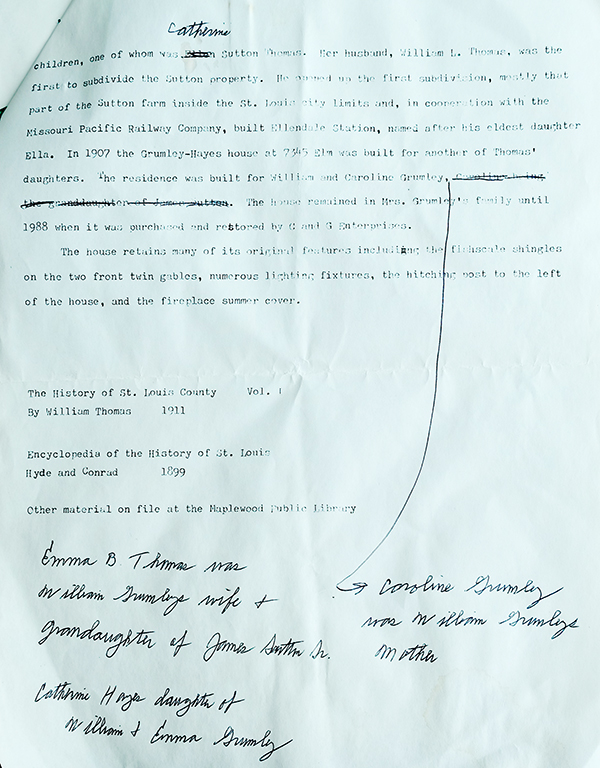 Catherine
children, one of whom was Ellen Sutton Thomas. Her husband, William L. Thomas, was the
first to subdivide the Sutton property. He opened up the first subdivision, mostly that
part of the Sutton farm inside the St. Louis city limits and, in cooperation with the
Missouri Pacific Railway Company, built Ellendale Station, named after his eldest daughter
Ella. In 1907 the Grumley-Hayes house at 7345 Elm was built for another of Thomas'
daughters. The residence was built for William and Caroline Grumley, Caroline being
the granddaughter of James Sutton. The house remained in Mrs. Grumley's family until
1988 when it was purchased and restored by C and G Enterprises.
The house retains many of its original features including the fishscale shingles
on the two front twin gables, numerous lighting fixtures, the hitching post to the left
of the house, and the fireplace summer cover.
The History of St. Louis County Vol. I
By William Thomas 1911
Encyclopedia of the History of St. Louis
Hyde and Conrad 1899
Other material on file at the Maplewood Public Library
Emma B Thomas was
William Grumleys wife &
grandaughter of James Sutton Sr.
Catherine Hayes daughter of
William & Emma Grumley
Caroline Grumley
was William Grumleys
Mother